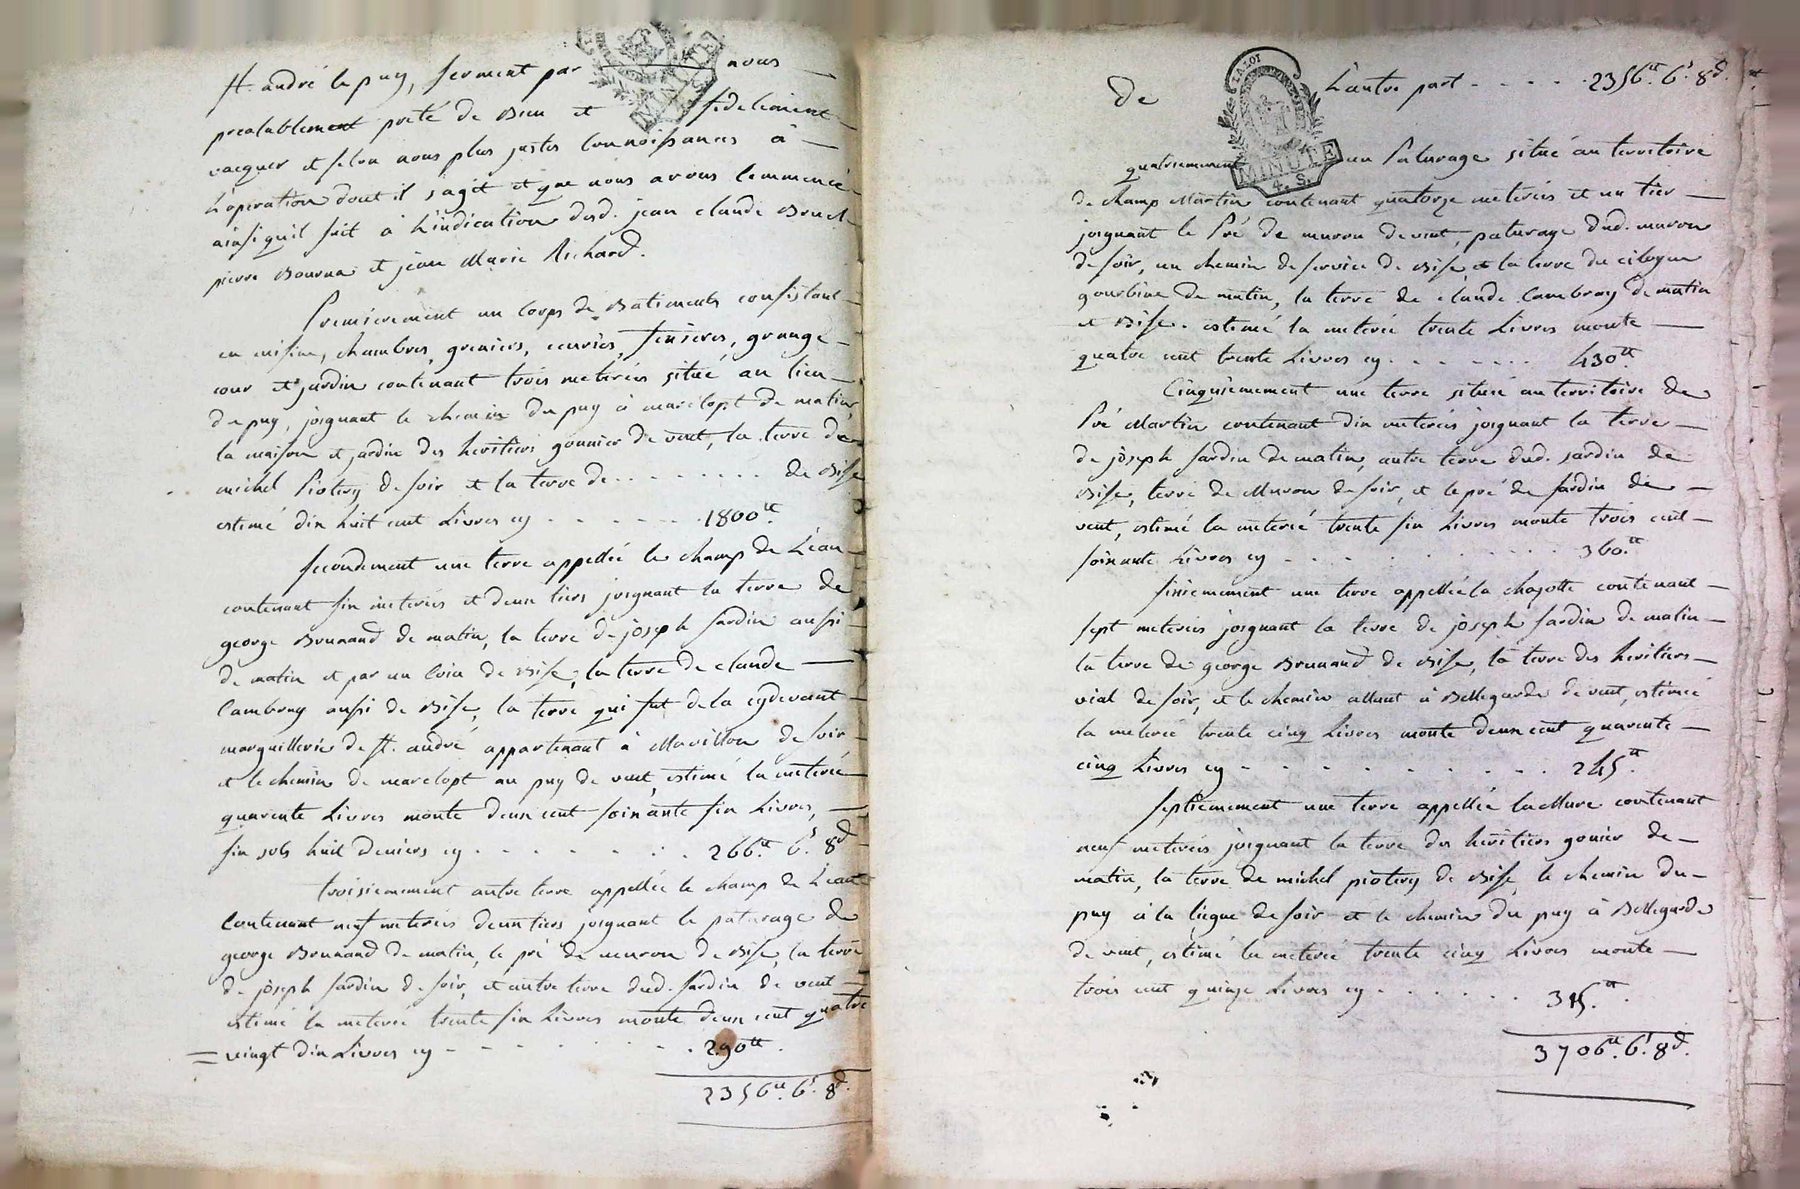 St. andré le puy, serment par nous
prealablement preté de Bien et fidelement
vacquer et selon nous plus justes Connoissances à
L'operation dont il s'agit et que nous avons Commencé
ainsi quil suit à L'indication desd. jean claude Bruel
pierre Bournat et jean Marie Richard.
Premierement un Corps de Batiments consistant
en cuisine, chambres, greniers, écuries, fenieres, grange
cour et jardin contenant trois meterées situé au lieu
du puy, joignant le chemin du puy à marclopt de matin,
la maison et jardin des heritiers gounier de vent, la terre de
michel Piotery de soir et la terre de . . . . . . . . de Bise
estimé dix huit cent Livres cy . . . . . . 1800tt.
Secondement une terre appellée le champ de L'éau
contenant six meterées et deux tiers joignant la terre de
george Brunand de matin, la terre de joseph Jardin aussi
de matin et par un Coin de Bise, la terre de claude
Cambray aussi de Bise, la terre qui fut de la cydevant
marguillerie de St. andré appartenant à Mavillon de soir
et le chemin de marclopt au puy de vent, estimé la meterée
quarente Livres monte deux cent soixante six Livres,
six sols huit deniers cy . . . . . . . . 266tt. 6s. 8d
troisiemement autre terre appellée le champ de L'éau
Contenant neuf meterées deux tiers joignant le paturage de
george Brunand de matin, le pré de muron de Bise, la terre
de joseph Jardin de soir, et autre terre dud. Jardin de vent
estimé la meterée trente six Livres monte deux cent quatre
vingt dix Livres cy . . . . . . . . . 290tt.
2356tt. 6s. 8d.
De L'autre part . . . . . 2356tt. 6s. 8d.
MINUTE
4. S.
quatriemement un Paturage situé au territoire
de champ Martin contenant quatorze meterées et un tier
joignant le Pré de muron de vent, paturage dud. muron
de soir, un chemin de service de Bise, et la terre du citoyen
gourbine de matin, la terre de claude Cambray de matin
et Bise. estimé la meterée trente Livres monte
quatre cent trente Livres cy . . . . . . . 430tt
Cinquiemement une terre située au territoire de
Pré Martin contenant dix meterées joignant la terre
de joseph Jardin de matin, autre terre dud. jardin de
Bise, terre de Muron de soir, et le pré de Jardin de
vent, estimé la meterée trente six Livres monte trois cent
soixante Livres cy . . . . . . . . . . . 360.tt
sixiemement une terre appellée la chazotte contenant
sept meterées joignant la terre de joseph Jardin de matin
la terre de george Brunand de Bise, la terre des heritiers
vial de soir, et le chemin allant à Bellegarde de vent, estimée
la meterée trente cinq Livres monte deux cent quarente
cinq Livres cy . . . . . . . . . . 245tt.
Septiemement une terre appellée la Mure contenant
neuf meterées joignant la terre des heritiers gonier de
matin, la terre de michel piotery de Bise, le chemin du
puy à la liegue de soir et le chemin du puy à Bellegarde
de vent, estimé la meterée trente cinq Livres monte
trois cent quinze Livres cy . . . . . . . 315.tt
3706tt. 6s. 8d.